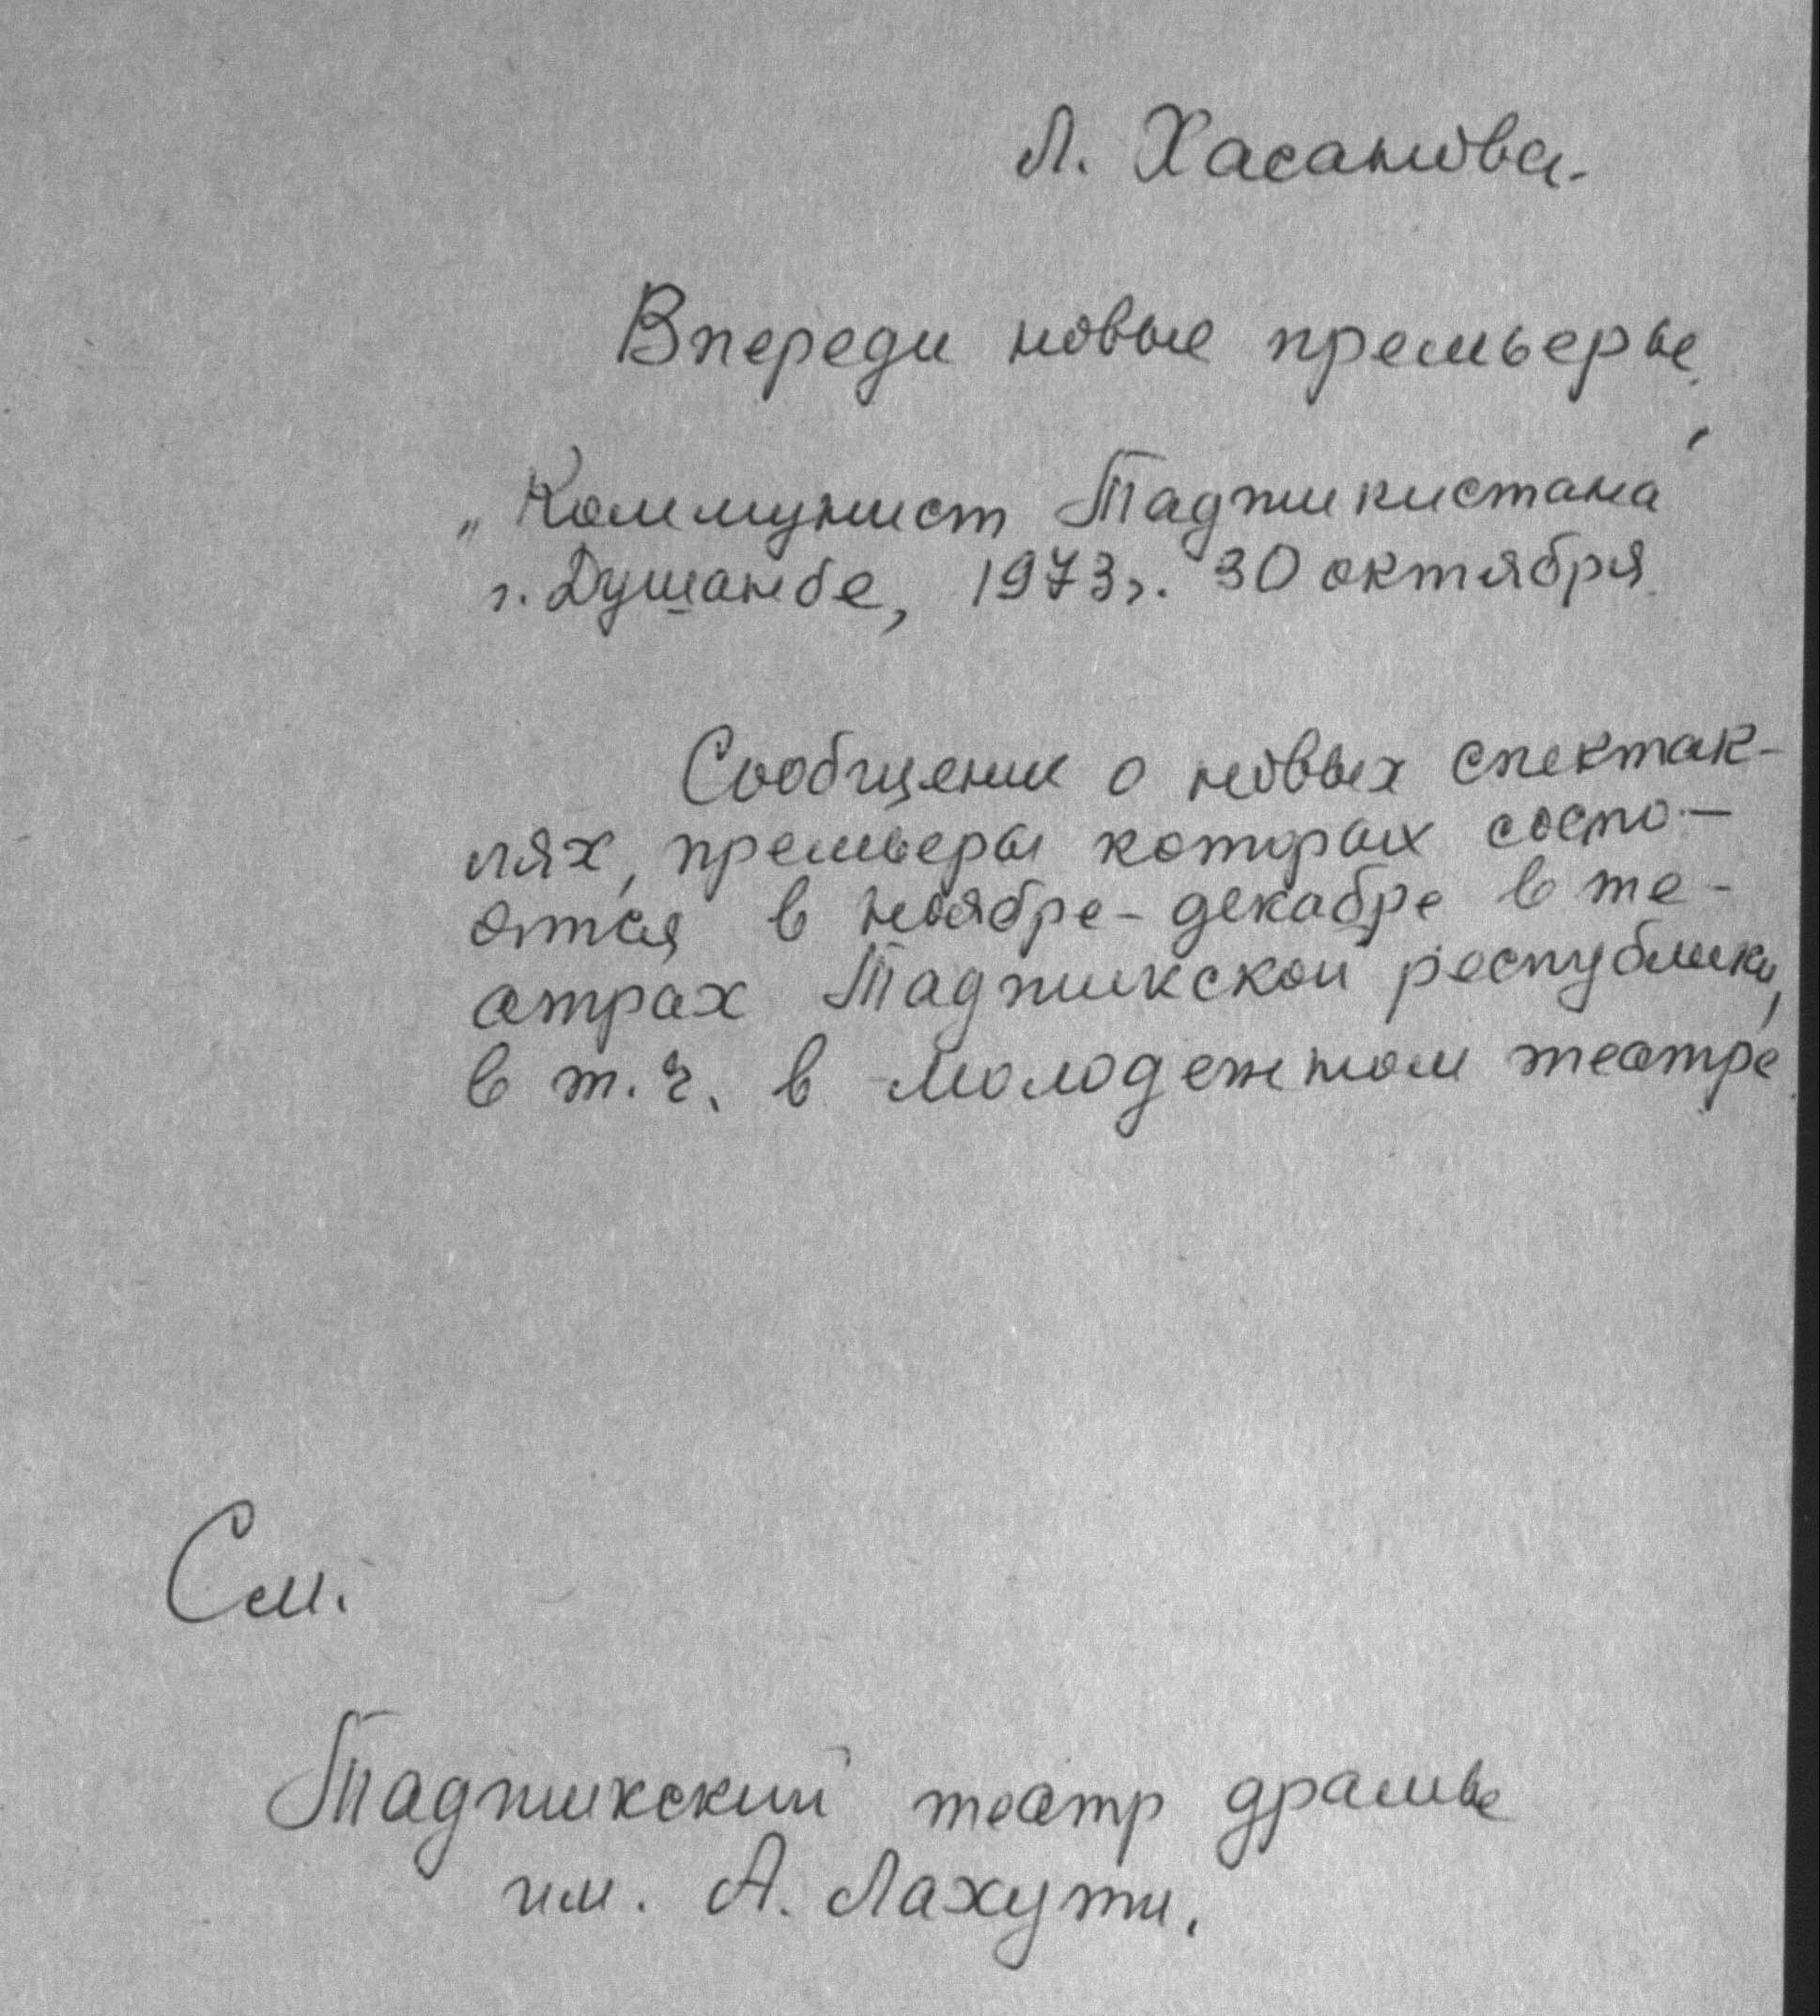 Л. Хасанова.
Впереди новые премьеры.
„Коммунист Таджикистана"
г. Душанбе, 1973 г. 30 октября.
Сообщение о новых спектак-
лях, премьеры которых состо-
ятся в ноябре-декабре в те-
атрах Таджикской республики,
в т.ч. в молодежном театре.
См.
Таджикский театр драмы
им. А. Лахути.